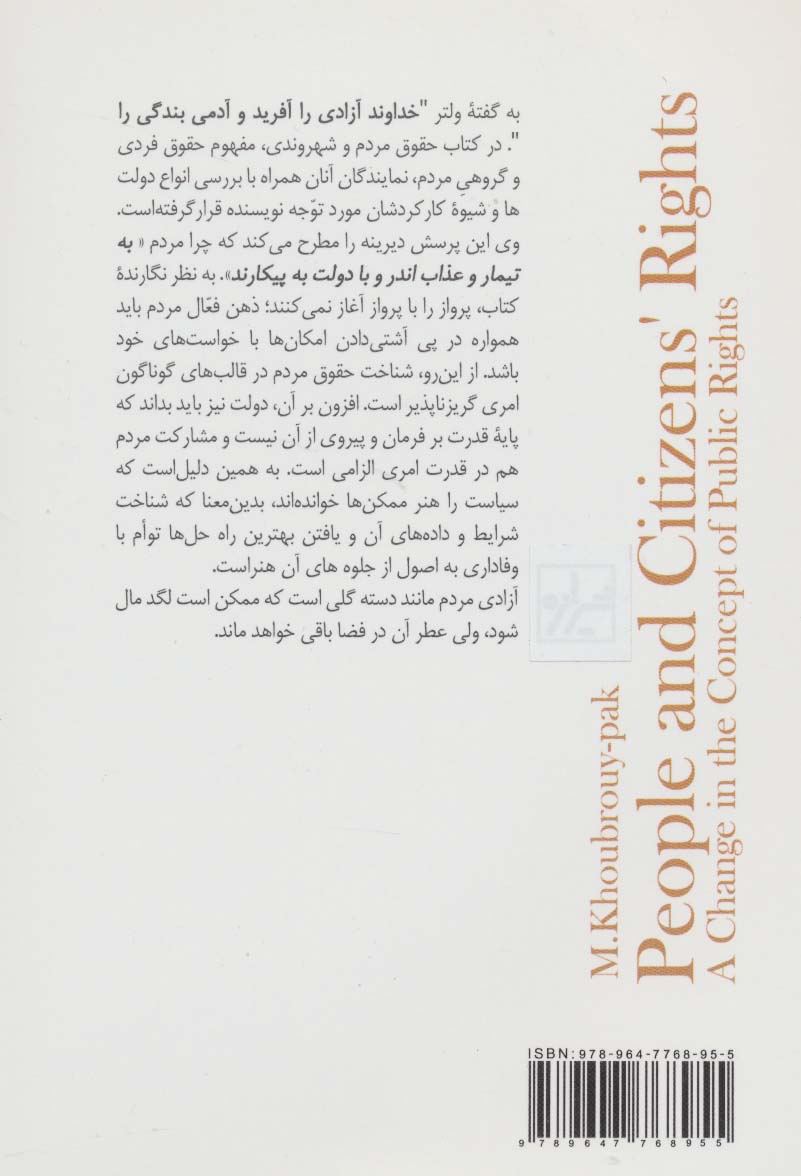 به گفتهٔ ولتر "خداوند آزادی را آفرید و آدمی بندگی را
". در کتاب حقوق مردم و شهروندی، مفهوم حقوق فردی
و گروهیِ مردم، نمایندگان آنان همراه با بررسی انواع دولت
ها و شیوهٔ کارکردشان مورد توّجه نویسنده قرارگرفته‌است.
وی این پرسش دیرینه را مطرح می‌کند که چرا مردم « به
تیمار و عذاب اندر و با دولت به پیکارند». به نظر نگارندهٔ
کتاب، پرواز را با پرواز آغاز نمی‌کنند؛ ذهن فعّال مردم باید
همواره در پی آشتی‌دادن امکان‌ها با خواست‌های خود
باشد. از این‌رو، شناخت حقوق مردم در قالب‌های گوناگون
امری گریزناپذیر است. افزون بر آن، دولت نیز باید بداند که
پایهٔ قدرت بر فرمان و پیروی از آن نیست و مشارکت مردم
هم در قدرت امری الزامی است. به همین دلیل‌است که
سیاست را هنر ممکن‌ها خوانده‌اند، بدین‌معنا که شناخت
شرایط و داده‌های آن و یافتن بهترین راه حل‌ها توأم با
وفاداری به اصول از جلوه های آن هنراست.
آزادی مردم مانند دسته گلی است که ممکن است لگد مال
شود، ولی عطر آن در فضا باقی خواهد ماند.
M.Khoubrouy-pak
People and Citizens' Rights
A Change in the Concept of Public Rights
ISBN:978-964-7768-95-5
9 789647 768955